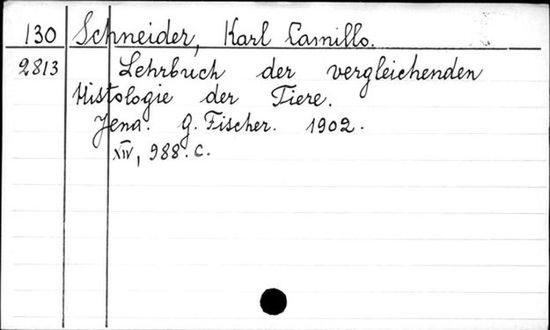 130 Schneider, Karl Camillo.
2813 Lehrbuch der vergleichenden
Histologie der Tiere.
Jena. G. Fischer. 1902.
XIV, 988. c.